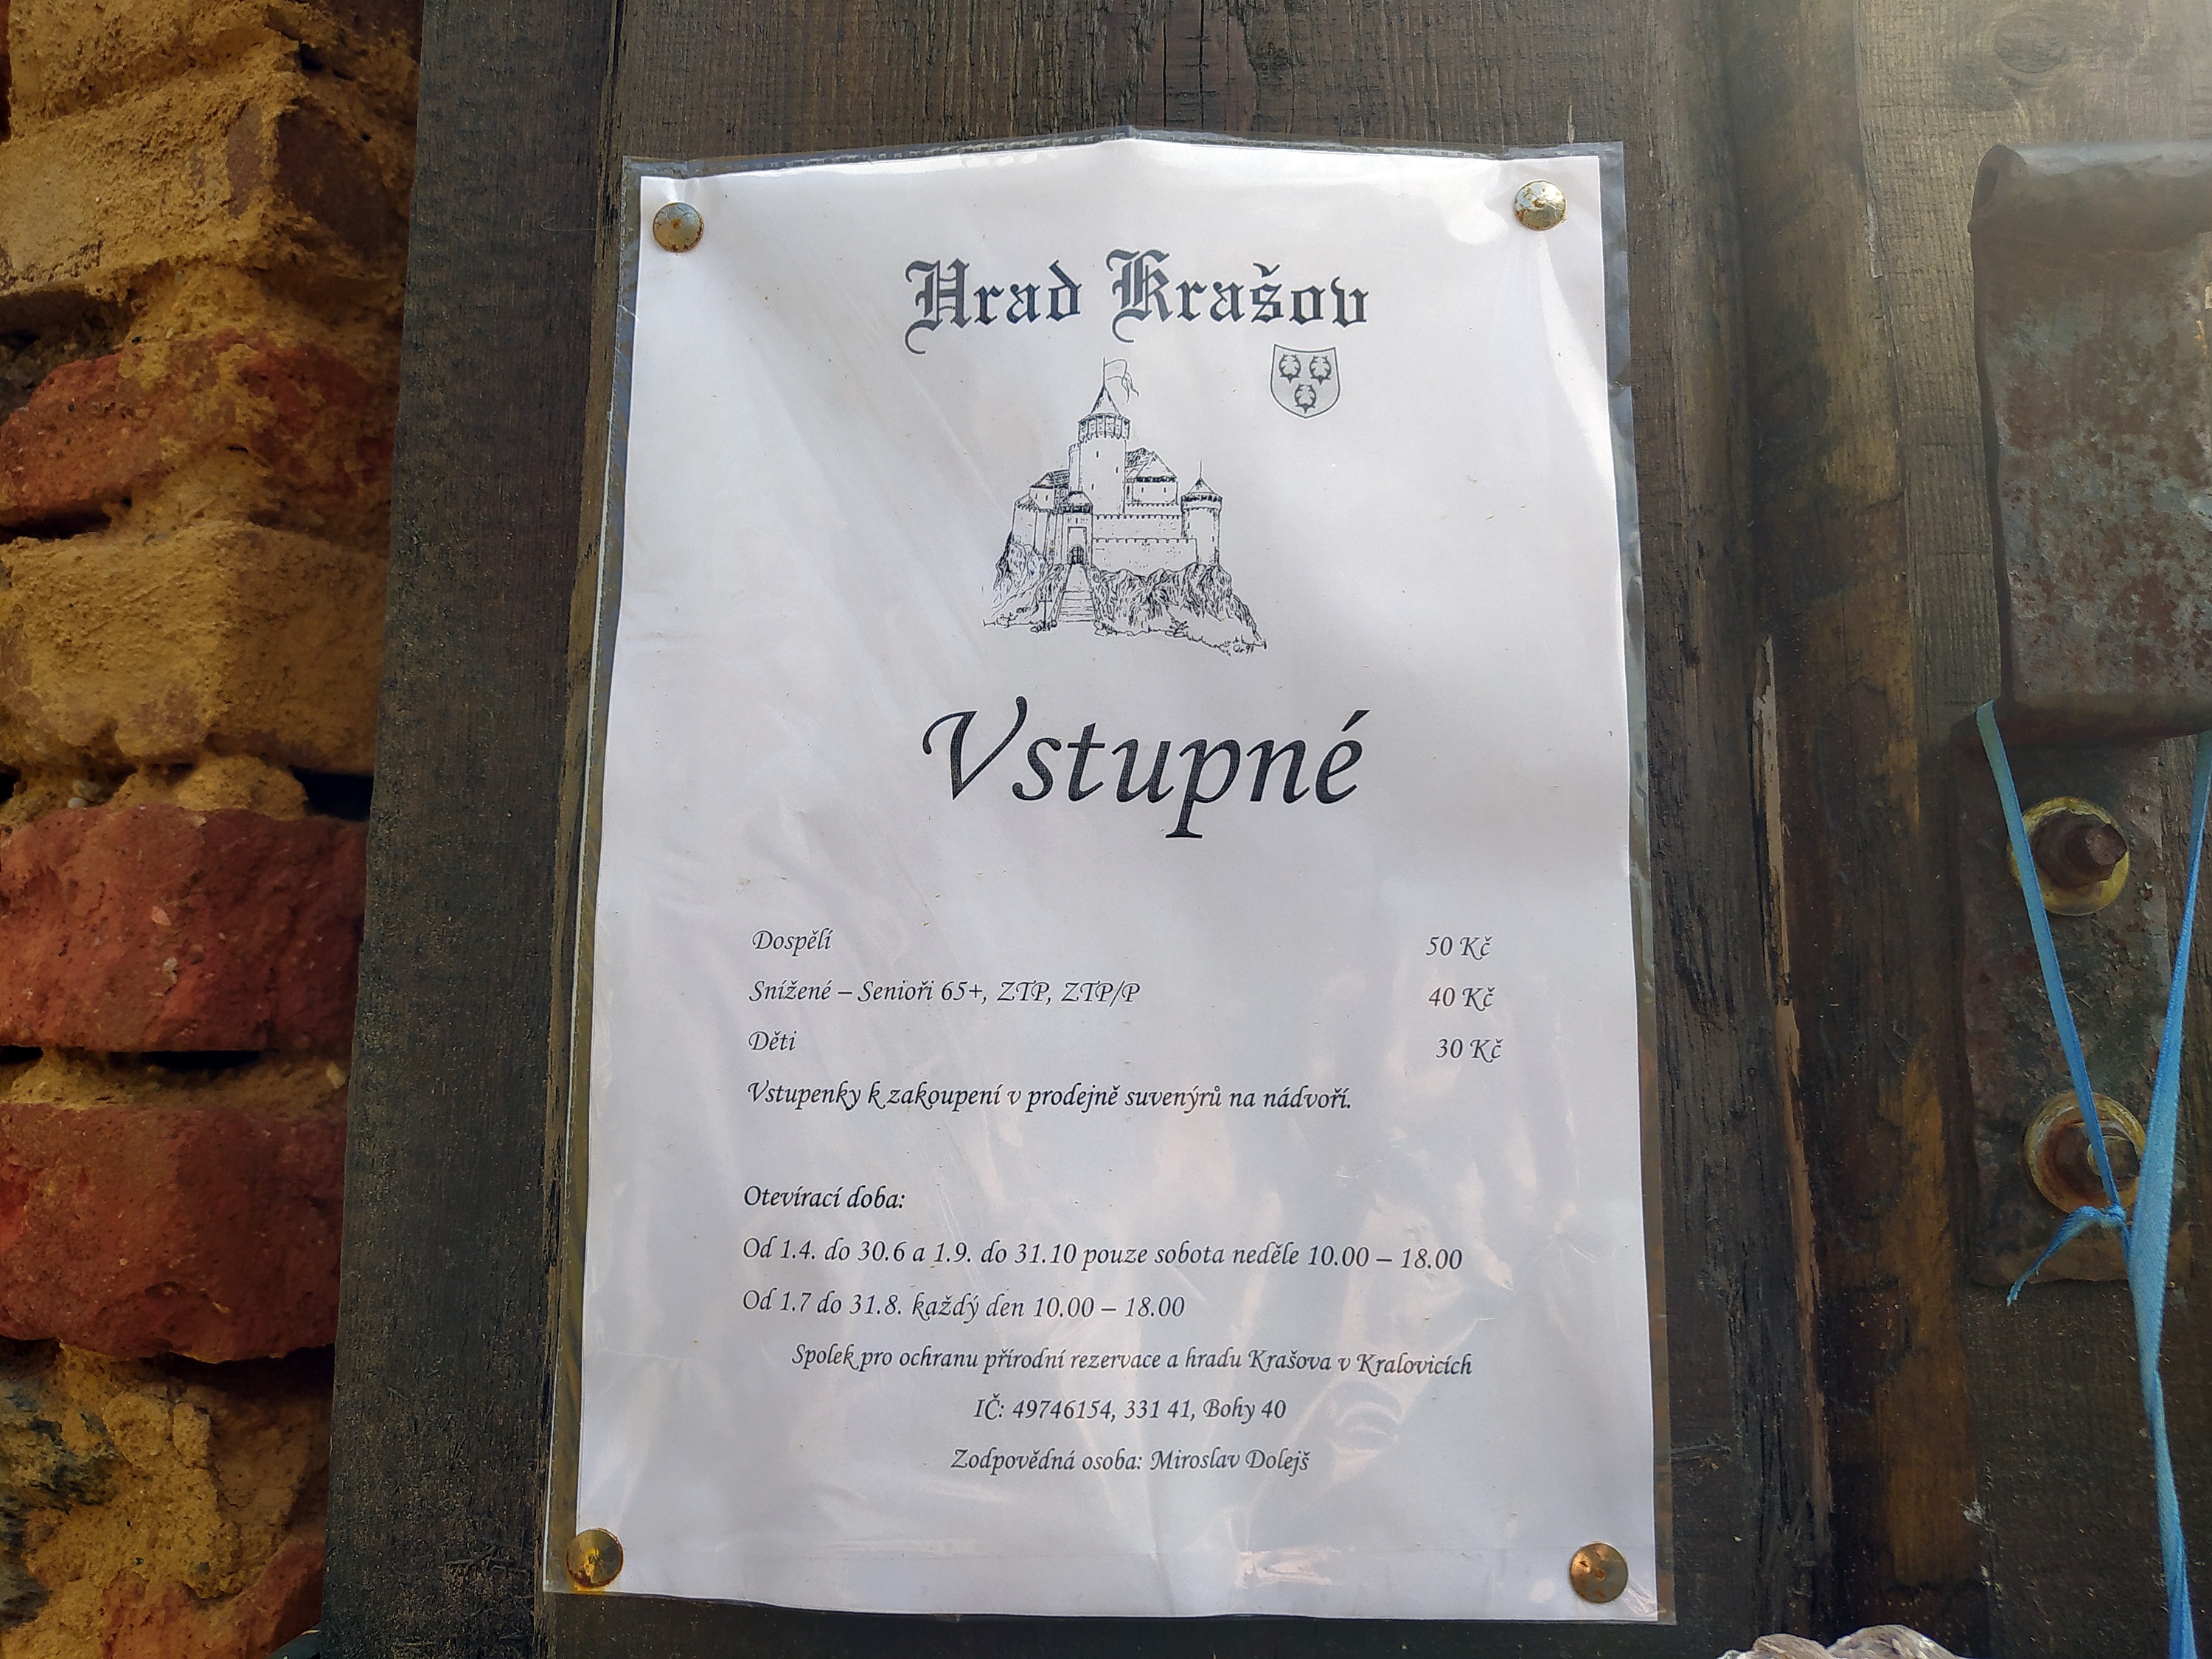 Hrad Krašov
Vstupné
Dospělí 50 Kč
Snížené – Senioři 65+, ZTP, ZTP/P 40 Kč
Děti 30 Kč
Vstupenky k zakoupení v prodejně suvenýrů na nádvoří.
Otevírací doba:
Od 1.4. do 30.6 a 1.9. do 31.10 pouze sobota neděle 10.00 – 18.00
Od 1.7 do 31.8. každý den 10.00 – 18.00
Spolek pro ochranu přírodní rezervace a hradu Krašova v Kralovicích
IČ: 49746154, 331 41, Bohy 40
Zodpovědná osoba: Miroslav Dolejš